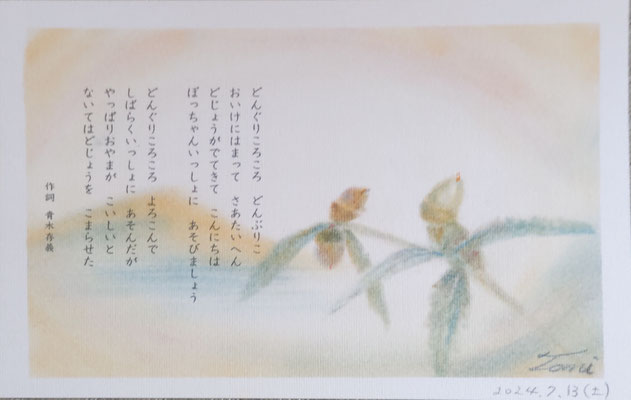 どんぐりころころ どんぶりこ
おいけにはまって さあたいへん
どじょうがでてきて こんにちは
ぼっちゃんいっしょに あそびましょう
どんぐりころころ よろこんで
しばらくいっしょに あそんだが
やっぱりおやまが こいしいと
ないてはどじょうを こまらせた
作詞 青木存義
2024.7.13(土)